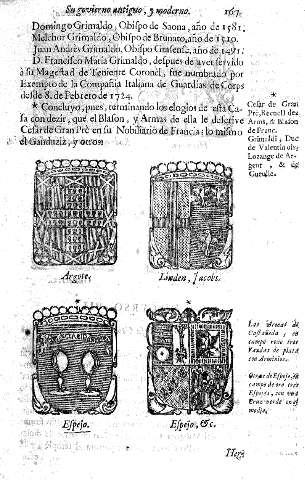 Su govierno antiguo, y moderno. 167.
Domingo Grimaldo, Obispo de Saona, año de 1581.
Melchor Grimaldo, Obispo de Brunato, año de 1529.
Juan Andrès Grimaldo, Obispo Grasense, año de 1491.
D. Francisco Maria Grimaldo, despues de aver servido
à su Magestad de Teniente Coronèl, fue nombrado por
Exempto de la Compañia Italiana de Guardias de Corps
desde 8. de Febrero de 1724.
* Concluyo, pues, terminando los elogios de esta Ca-
sa con dezir, què el Blason, y Armas de ella le descrive
Cesar de Gran Prè en su Nobiliario de Francia: lo mismo
el Ganduziz, y otros
*
Cesar de Gran
Prè, Recueil des
Arms, & Blason
de Franc.
Grimaldi, Duc
de Valentinois
Lozange de Ar-
gent, & de
Gueulle.
Argote.
Linden, Jacobs.
Las Armas de
Castañeda, en
campo roxo tres
Vandas de plata
con Arminios.
Otras de Espejo, en
campo de oro tres
Espejos, con una
Cruz verde en el
medio.
Espejo.
Espejo, &c.